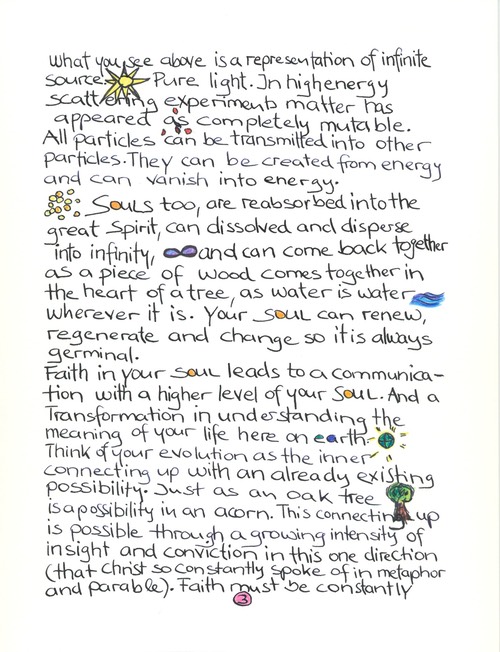 What you see above is a representation of infinite
source. Pure light. In high energy
scattering experiments matter has
appeared as completely mutable.
All particles can be transmitted into other
particles. They can be created from energy
and can vanish into energy.
Souls too, are reabsorbed into the
great spirit, can dissolved and disperse
into infinity, and can come back together
as a piece of wood comes together in
the heart of a tree, as water is water
wherever it is. Your soul can renew,
regenerate and change so it is always
germinal.
Faith in your soul leads to a communica-
tion with a higher level of your soul. And a
Transformation in understanding the
meaning of your life here on earth.
Think of your evolution as the inner
connecting up with an already existing
possibility. Just as an oak tree
is a possibility in an acorn. This connecting up
is possible through a growing intensity of
insight and conviction in this one direction
(that Christ so constantly spoke of in metaphor
and parable). Faith must be constantly
3